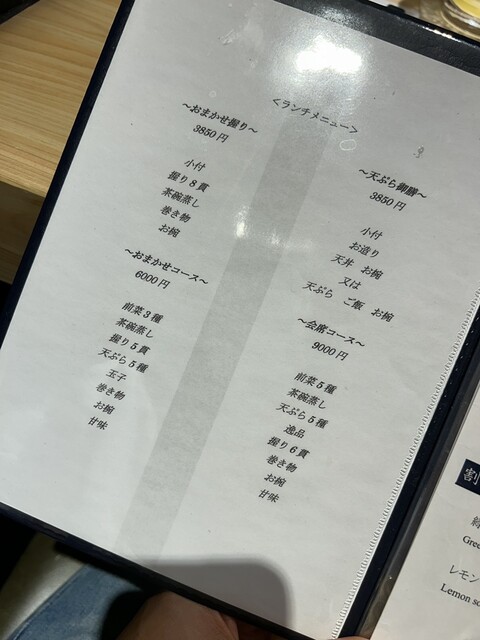 ＜ランチメニュー＞
～おまかせ握り～
3850円
小付
握り8貫
茶碗蒸し
巻き物
お椀
～おまかせコース～
6000円
前菜3種
茶碗蒸し
握り5貫
天ぷら5種
玉子
巻き物
お椀
甘味
～天ぷら御膳～
3850円
小付
お造り
天丼 お椀
又は
天ぷら ご飯 お椀
～会席コース～
9000円
前菜5種
茶碗蒸し
天ぷら5種
逸品
握り6貫
巻き物
お椀
甘味
割
Gree
レモン
Lemon so